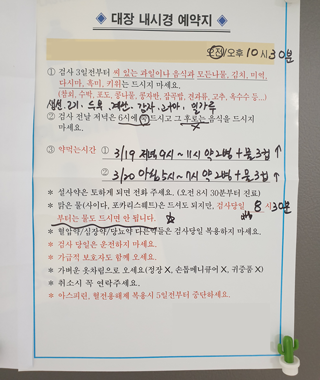 ◆ 대장 내시경 예약지 ◆
오전/오후 10시 30분
① 검사 3일전부터 씨 있는 과일이나 음식과 모든나물, 김치, 미역,
다시마, 흑미, 키위는 드시지 마세요.
(참외, 수박, 포도, 콩나물, 콩자반, 잡곡밥, 견과류, 고추, 옥수수 등...)
생선, 두유, 계란, 감자, 밀가루
② 검사 전날 저녁은 6시에 드시고 그 후로는 음식을 드시지
마세요.
③ 약먹는시간 ① 3/19 저녁 9시~11시 약 2병 + 물 3컵 ↑
② 3/20 아침 5시~7시 약 2병 + 물 3컵 ↑
* 설사약은 토하게 되면 전화 주세요. (오전 8시 30분부터 진료)
* 맑은 물(사이다, 포카리스웨트)은 드셔도 되지만, 검사당일 8시 30분
부터는 물도 드시면 안 됩니다.
* 혈압약/심장약/당뇨약 다른약들은 검사당일 복용하지 마세요.
* 검사 당일은 운전하지 마세요.
* 가급적 보호자도 함께 오세요.
* 가벼운 옷차림으로 오세요(정장 X, 손톱메니큐어 X, 귀중품 X)
* 취소시 꼭 연락주세요.
* 아스피린, 혈전용해제 복용시 5일전부터 중단하세요.